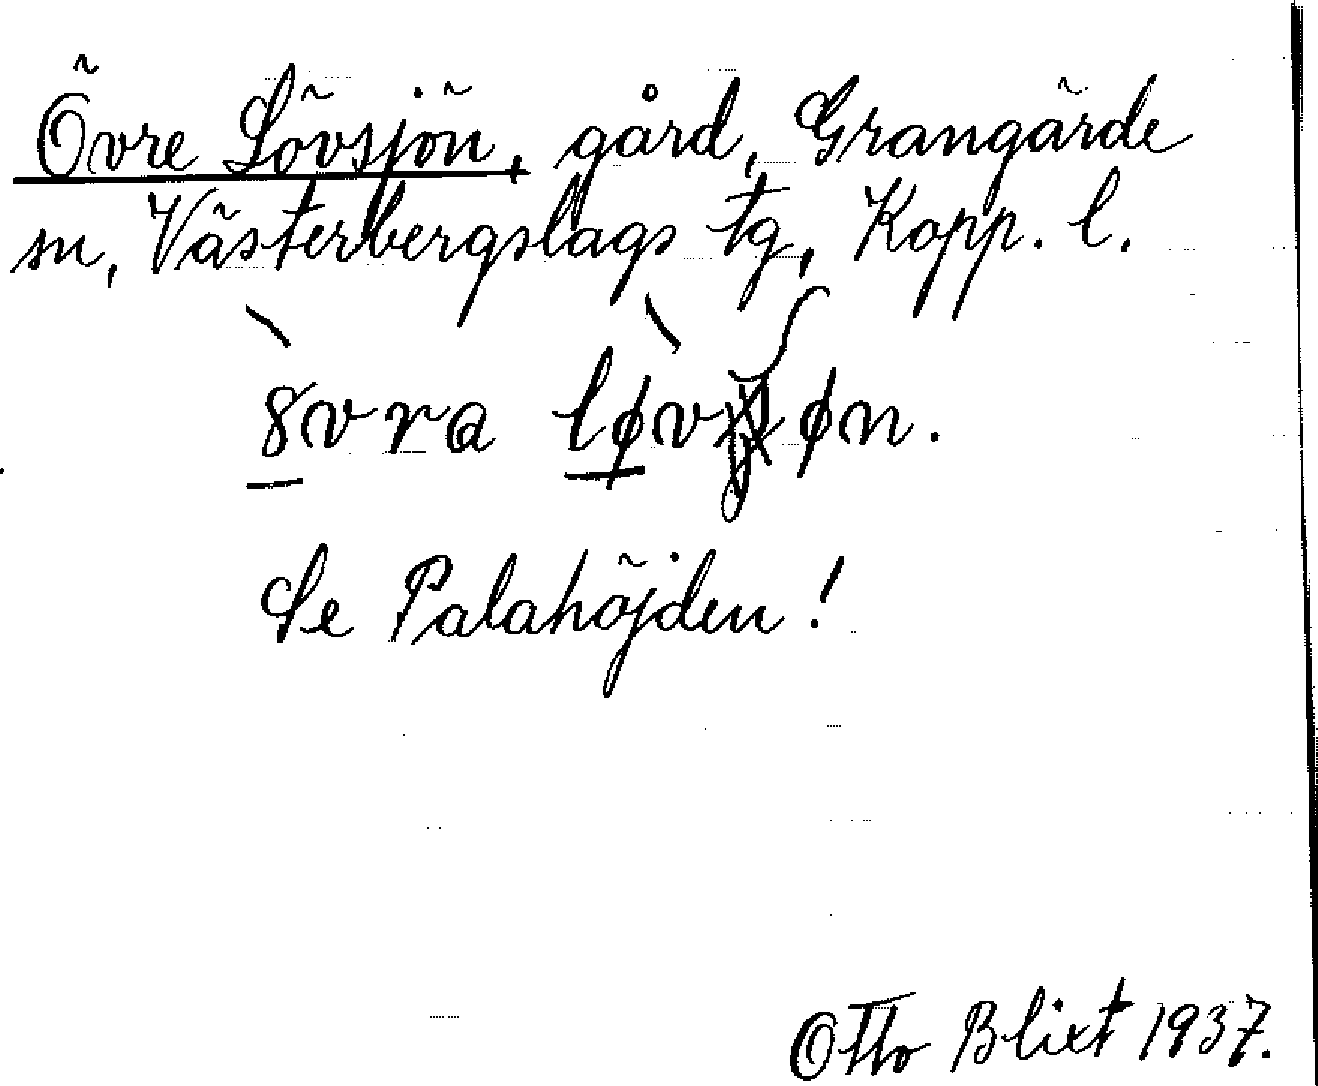 Övre Lövsjön, gård, Grangärde
sn, Västerbergslags tg, Kopp. l.
8vra løvʃøn.
Se Palahöjden!
Otto Blixt 1937.